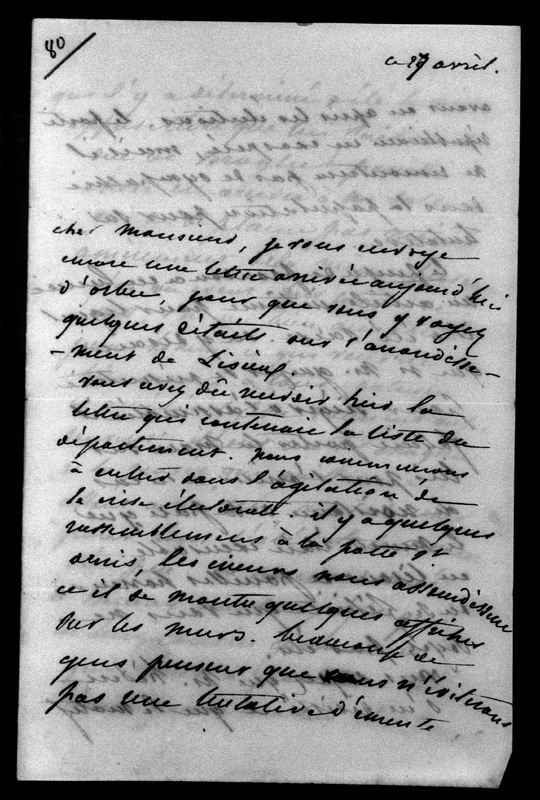 80
a 27 avril.
cher monsieur, je vous envoye
encore une lettre arrivée aujourd'hui
d'orbec, pour que vous y voyez
quelques détails sur l'arrondisse-
-ment de Lisieux
vous avez dû recevoir hier la
lettre qui contenait la liste du
département. nous commencons
à entrer dans l'agitation de
la crise électorale. il y a quelques
rassemblements à la porte St
denis, les crieurs nous assourdissent
et il se montre quelques affiches
sur les murs. beaucoup de
gens pensent que nous n'éviterons
pas une tentative d'émeute